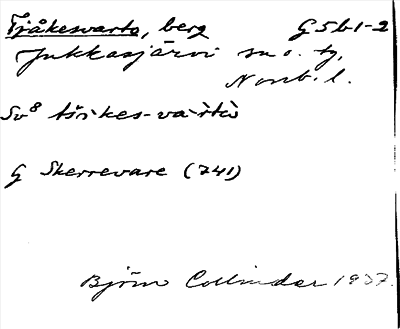 Tjåkesvarto, berg G 5 b 1-2
Jukkasjärvi sn o. tg,
Norrb. l.
Sv⁸
G Skerrevare (741)
Björn Collinder 1937.